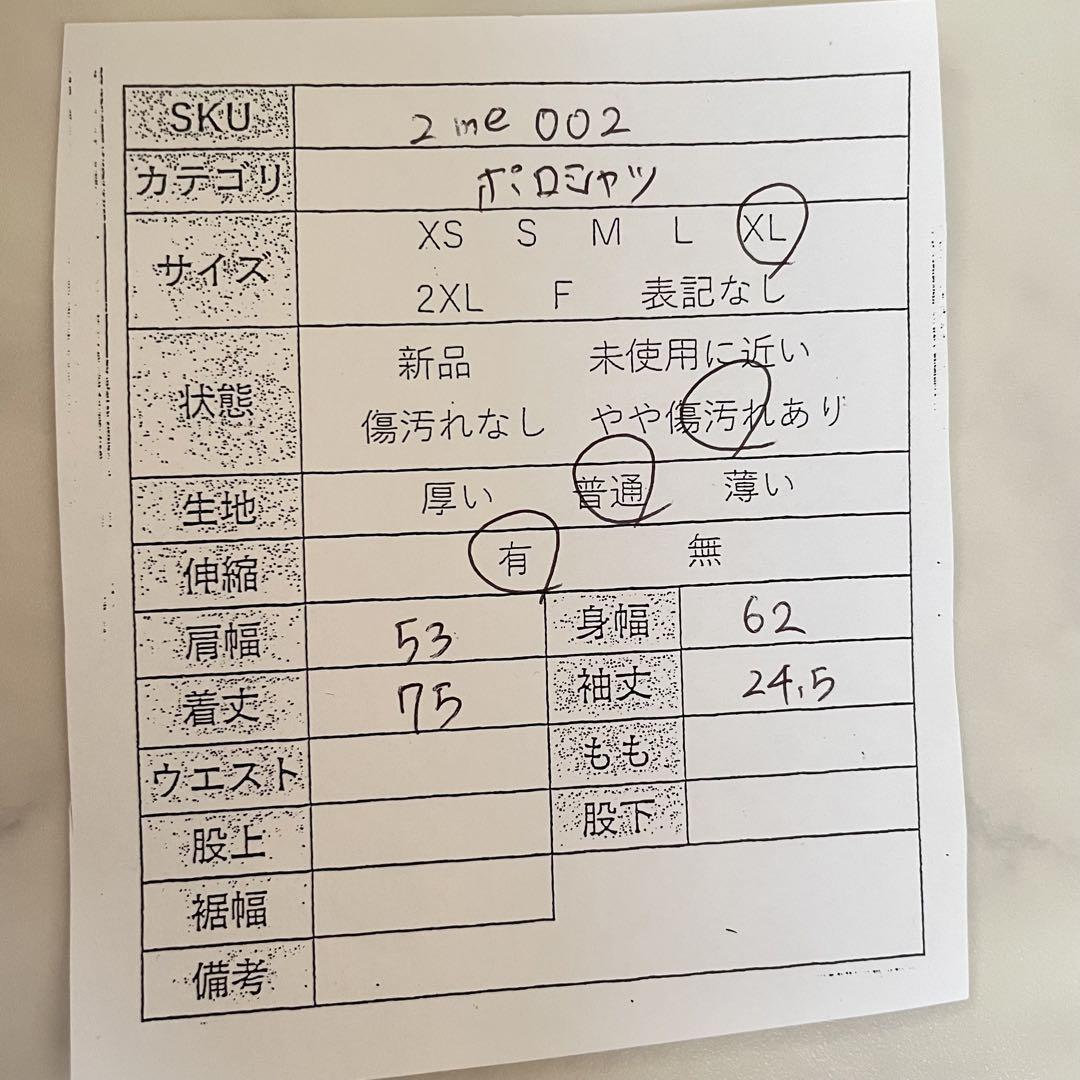 SKU 2me002
カテゴリ ポロシャツ
サイズ XS S M L XL
2XL F 表記なし
状態 新品 未使用に近い
傷汚れなし やや傷汚れあり
生地 厚い 普通 薄い
伸縮 有 無
肩幅 53 身幅 62
着丈 75 袖丈 24.5
ウエスト もも
股上 股下
裾幅
備考